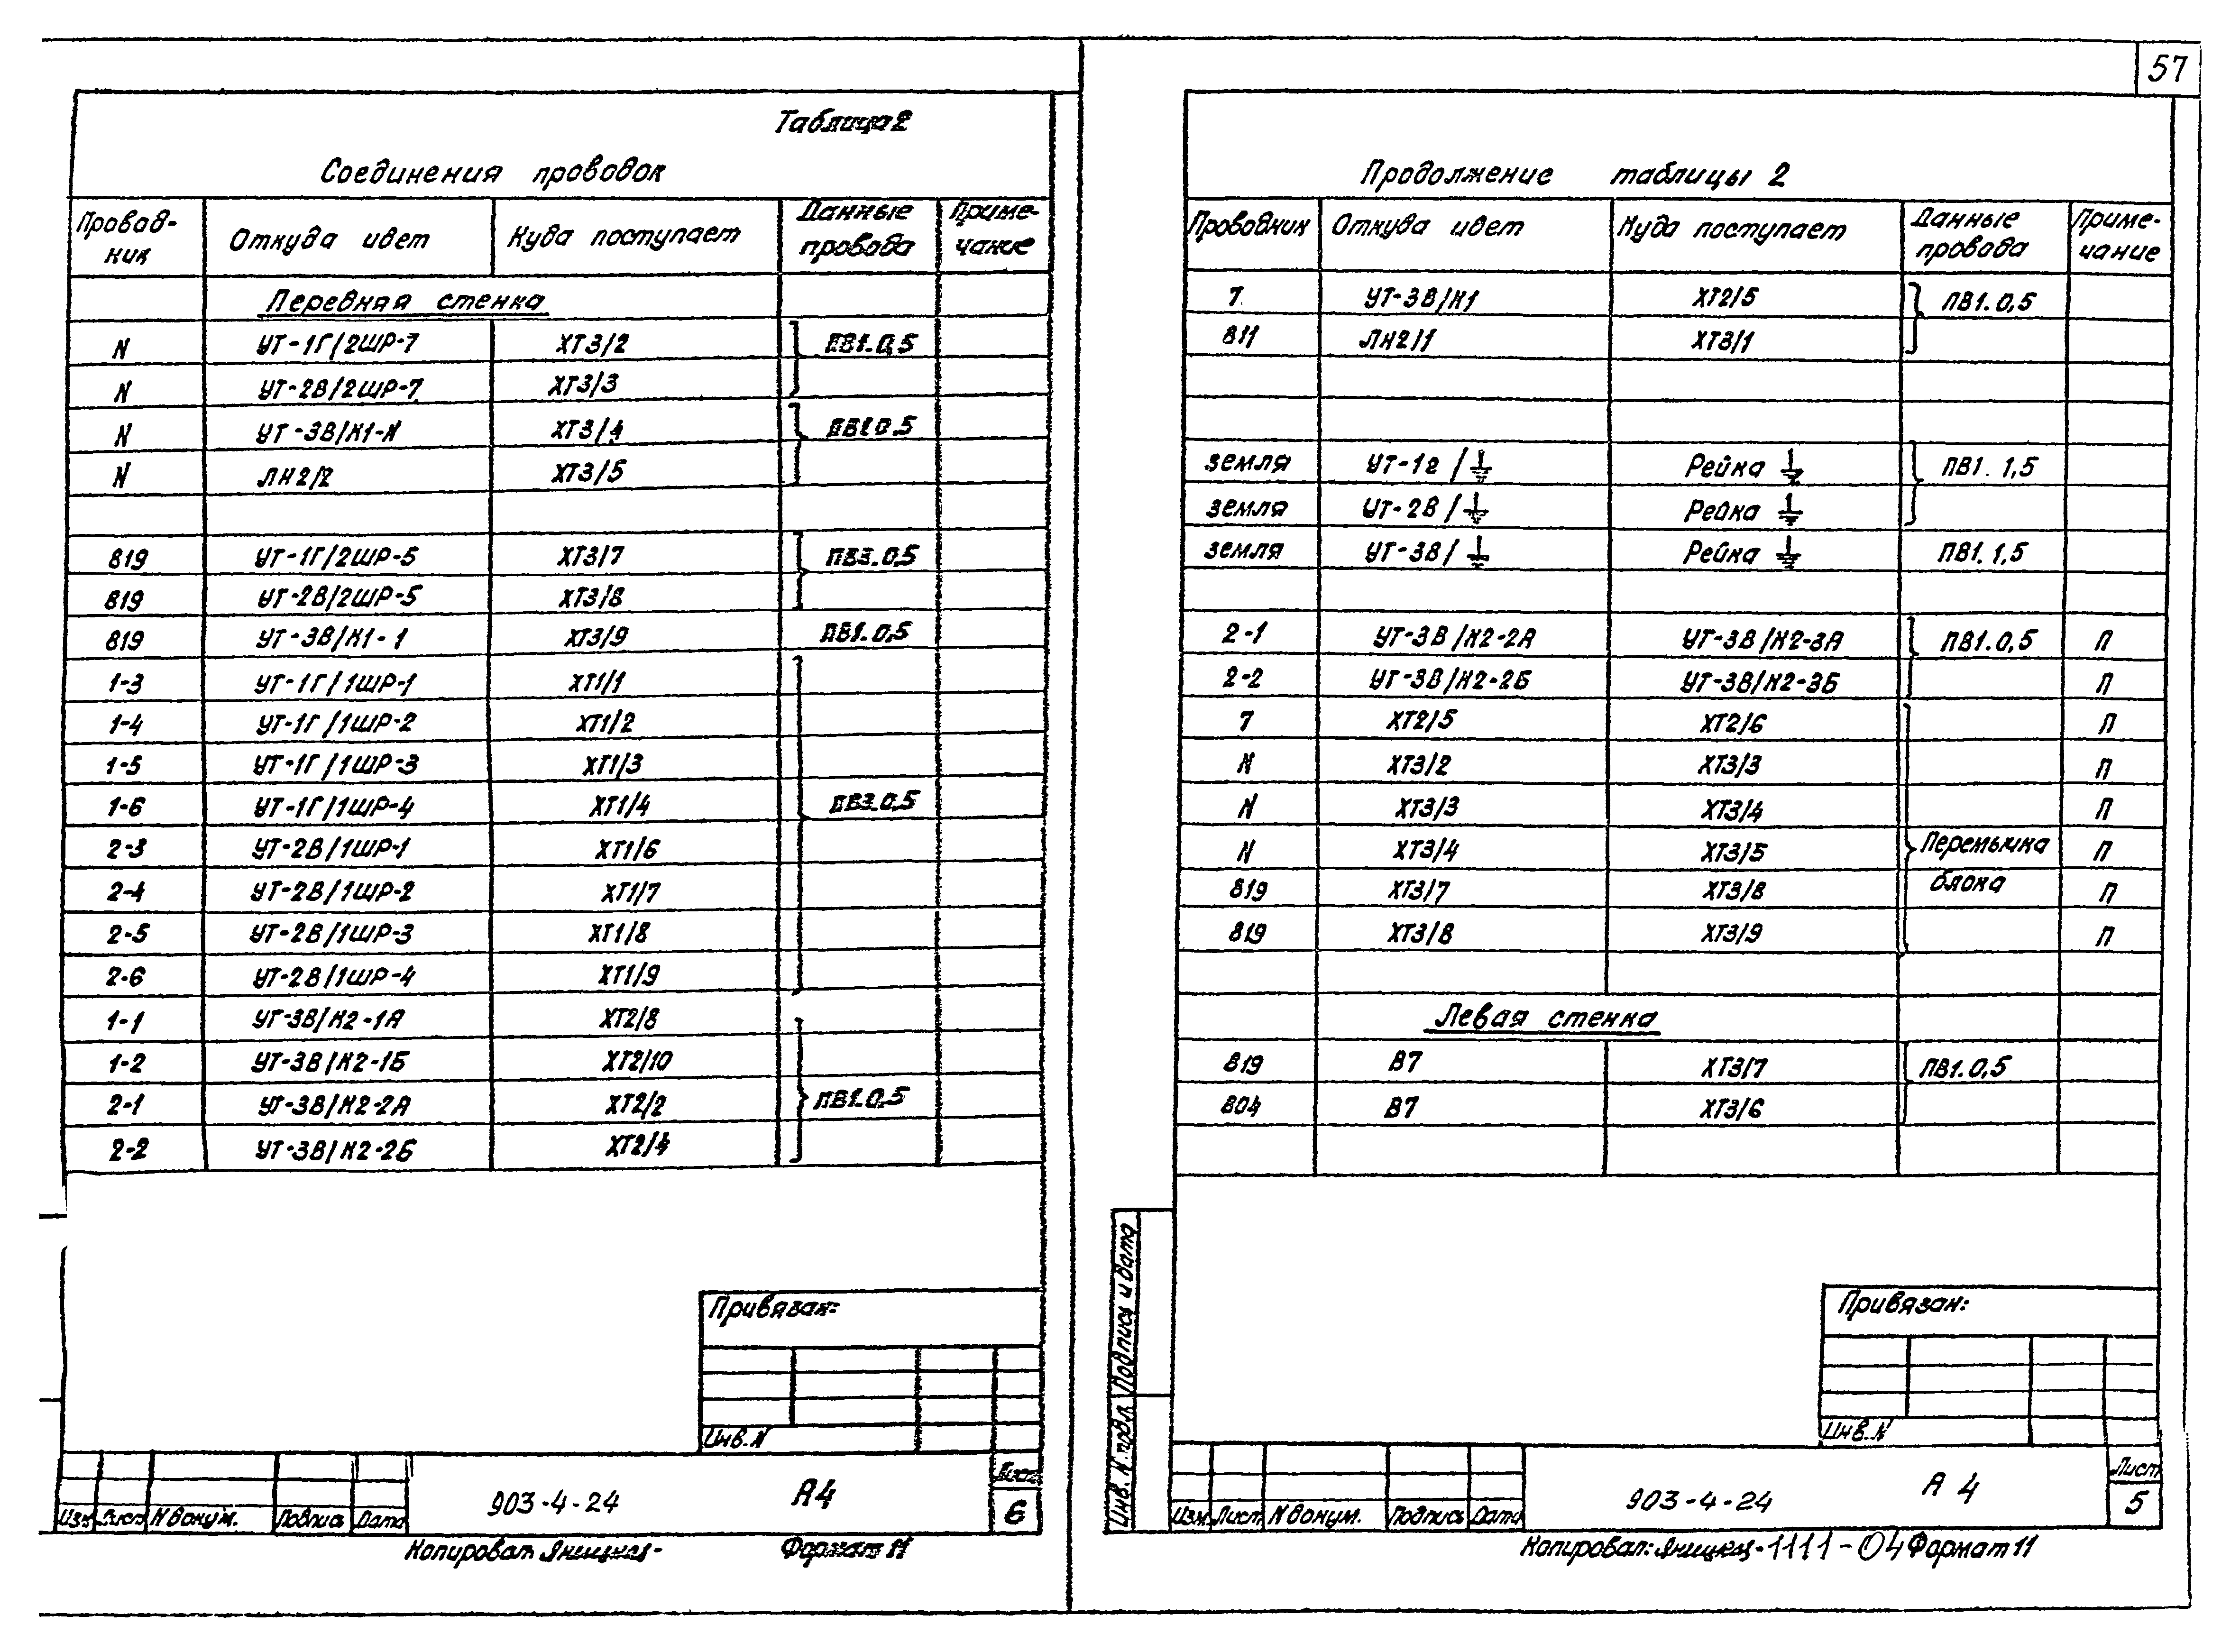 57
Таблица 2
Соединения проводок
Провод-ник | Откуда идет | Куда поступает | Данные провода | Приме-чание
Передняя стенка
N | УТ-1Г/2ШР-7 | ХТ3/2 | ПВ1.0,5
N | УТ-2В/2ШР-7 | ХТ3/3
N | УТ-3В/К1-N | ХТ3/4 | ПВ1 0,5
N | ЛН2/2 | ХТ3/5
819 | УТ-1Г/2ШР-5 | ХТ3/7 | ПВ3.0,5
819 | УТ-2В/2ШР-5 | ХТ3/8
819 | УТ-3В/К1-1 | ХТ3/9 | ПВ1.0,5
1-3 | УТ-1Г/1ШР-1 | ХТ1/1
1-4 | УТ-1Г/1ШР-2 | ХТ1/2
1-5 | УТ-1Г/1ШР-3 | ХТ1/3
1-6 | УТ-1Г/1ШР-4 | ХТ1/4 | ПВ3.0,5
2-3 | УТ-2В/1ШР-1 | ХТ1/6
2-4 | УТ-2В/1ШР-2 | ХТ1/7
2-5 | УТ-2В/1ШР-3 | ХТ1/8
2-6 | УТ-2В/1ШР-4 | ХТ1/9
1-1 | УТ-3В/К2-1А | ХТ2/8
1-2 | УТ-3В/К2-1Б | ХТ2/10
2-1 | УТ-3В/К2-2А | ХТ2/2 | ПВ1.0,5
2-2 | УТ-3В/К2-2Б | ХТ2/4
Привязан:
Инв. N
Изм Лист N докум. Подпись Дата
903-4-24
А4
Лист
6
Копировал Яницкая-
Формат 11
Продолжение таблицы 2
Проводник | Откуда идет | Куда поступает | Данные провода | Приме-чание
7 | УТ-3В/К1 | ХТ2/5 | ПВ1.0,5
811 | ЛН2/1 | ХТ3/1
земля | УТ-1г/⏚ | Рейка ⏚ | ПВ1. 1,5
земля | УТ-2В/⏚ | Рейка ⏚
земля | УТ-3В/⏚ | Рейка ⏚ | ПВ1. 1,5
2-1 | УТ-3В/К2-2А | УТ-3В/К2-3А | ПВ1.0,5 | П
2-2 | УТ-3В/К2-2Б | УТ-3В/К2-3Б | П
7 | ХТ2/5 | ХТ2/6 | П
N | ХТ3/2 | ХТ3/3 | П
N | ХТ3/3 | ХТ3/4 | П
N | ХТ3/4 | ХТ3/5 | Перемычка | П
819 | ХТ3/7 | ХТ3/8 | блока | П
819 | ХТ3/8 | ХТ3/9 | П
Левая стенка
819 | В7 | ХТ3/7 | ПВ1.0,5
804 | В7 | ХТ3/6
Инв. N. подл. Подпись и дата
Привязан:
Инв. N
Изм. Лист N докум. Подпись Дата
903-4-24
А 4
Лист
5
Копировал: Яницкая-1111-04 Формат 11